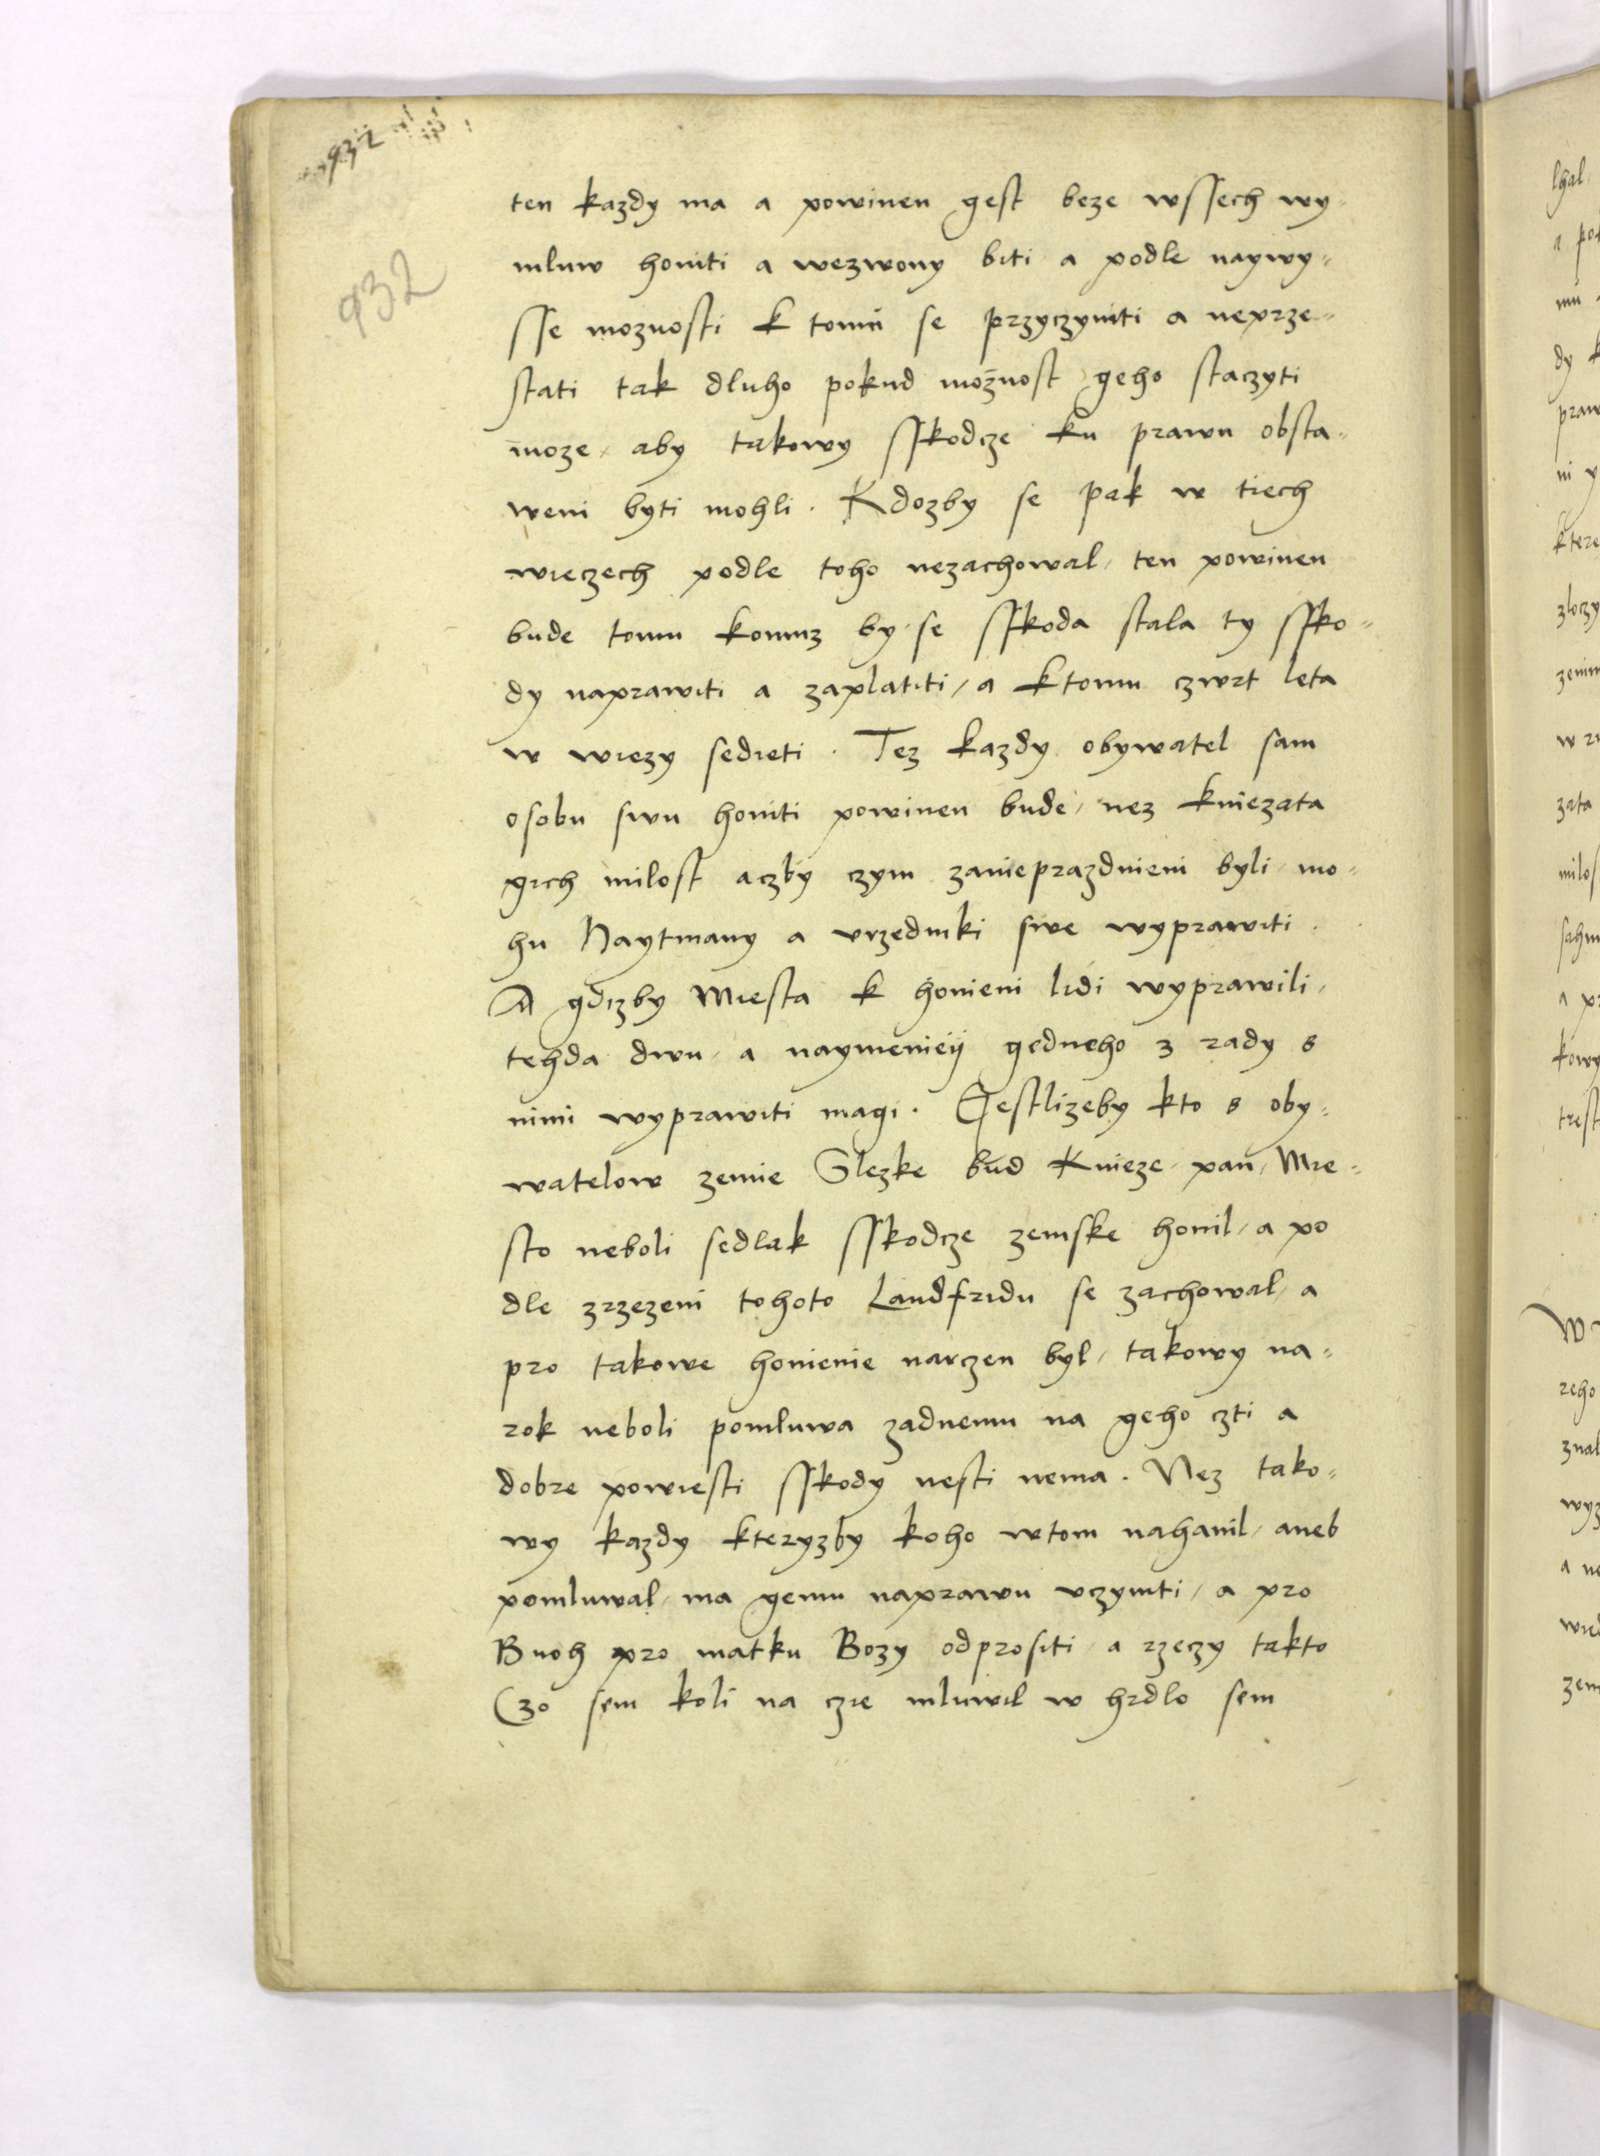 932
932
ten kazdy ma a powinen gest beze wssech wy-
mluw honiti a wezwony biti a podle naywy-
sse moznosti k tomu se przyczyniti a neprze-
stati tak dluho pokud možnost geho staczyti
moze, aby takowy sskodcze ku prawu obsta-
weni byti mohli. Kdozby se pak w tiech
wieczech podle toho nezachowal, ten powinen
bude tomu komuz by se sskoda stala ty ssko-
dy naprawiti a zaplatiti, a ktomu czwrt leta
w wiezy sedieti. Tez kazdy obywatel sam
osobu swu honiti powinen bude, nez kniezata
gich milost aczby czym zanieprazdnieni byli, mo-
hu Haytmany a vrzedniki swe wyprawiti.
A gdizby Miesta k honieni lidi wyprawili,
tehda dwu, a naymenieij gedneho z rady s
nimi wyprawiti magi. Gestlizeby kto s oby-
watelow zemie Slezke bud Knieze, pan, Mie-
sto neboli sedlak sskodcze zemske honil, a po
dle zrzezeni tohoto Landfridu se zachowal, a
pro takowe honienie narczen byl, takowy na-
rok neboli pomluwa zadnemu na geho czti a
dobre powiesti sskody nesti nema. Nez tako-
wy kazdy kteryzby koho wtom nahanil, aneb
pomluwal, ma gemu naprawu vczyniti, a pro
Buoh pro matku Bozy odprositi, a rzeczy takto
Czo sem koli na czie mluwil w hrdlo sem